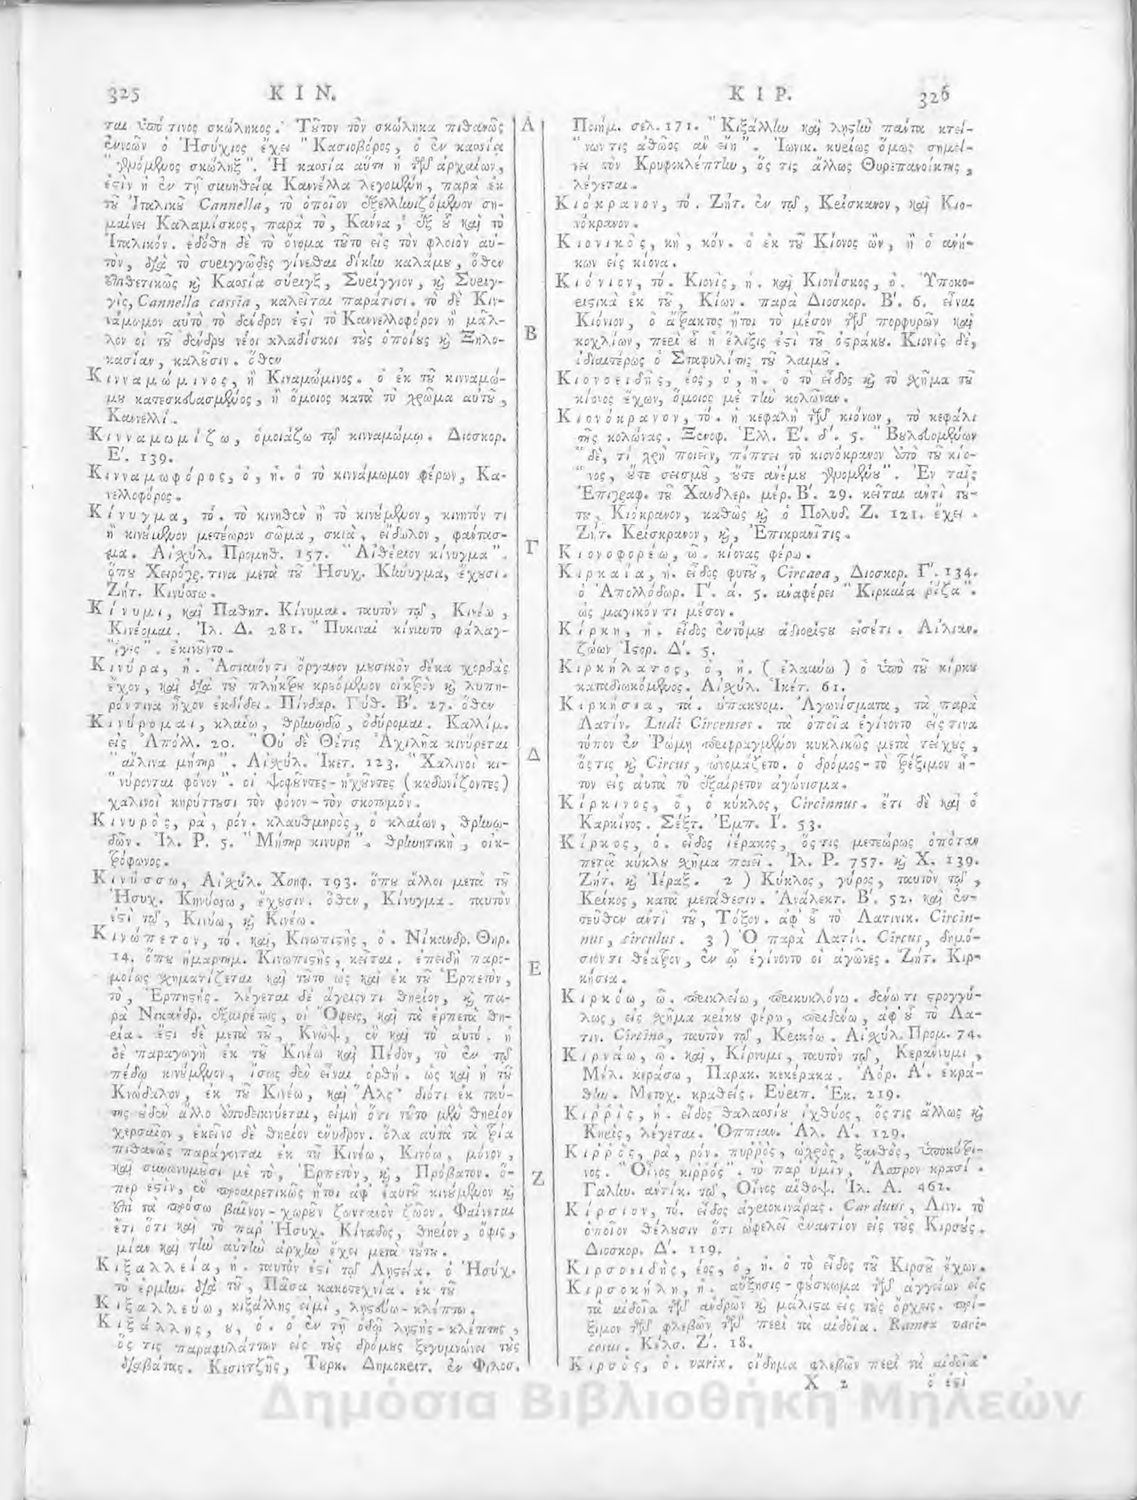 325 ΚΙΝ.
ται ὑπό τινος σκώληκος. Τοῦτον τὸν σκώληκα πιθανῶς
ἐννοῶν ὁ Ἡσύχιος ἔχει "Κασιοβόρος, ὁ ἐν κασσία
"γενόμενος σκώληξ". Ἡ κασσία αὕτη ἡ τῶν ἀρχαίων,
ἐστὶν ἡ ἐν τῇ συνηθείᾳ Καννέλλα λεγομένη, παρὰ ἐκ
τοῦ Ἰταλικοῦ Cannella, τὸ ὁποῖον ἐξελληνιζόμενον ση-
μαίνει Καλαμίσκος, παρὰ τὸ, Κάννα, ἐξ οὗ καὶ τὸ
Ἰταλικόν. ἐδόθη δὲ τὸ ὄνομα τοῦτο εἰς τὸν φλοιὸν αὐ-
τὸν, διὰ τὸ συριγγῶδες γίνεσθαι δίκην καλάμου, ὅθεν
ἐπιθετικῶς καὶ Κασσία σύριγξ, Συρίγγιον, καὶ Συριγ-
γὶς, Cannella cassia, καλεῖται παράτισι. τὸ δὲ Κιν-
νάμωμον αὐτὸ τὸ δένδρον ἐστὶ τὸ Καννελλοφόρον ἢ μᾶλ-
λον οἱ τοῦ δένδρου νέοι κλαδίσκοι τοὺς ὁποίους καὶ Ξηλο-
κασίαν, καλοῦσιν. ὅθεν
Κινναμώμινος, ἢ Κιναμώμινος. ὁ ἐκ τοῦ κινναμώ-
μου κατεσκευασμένος, ἢ ὅμοιος κατὰ τὸ χρῶμα αὐτοῦ,
Καννελλί.
Κινναμωμίζω, ὁμοιάζω τῷ κινναμώμῳ. Διοσκορ.
Ε΄. 139.
Κινναμωφόρος, ὁ, ἡ. ὁ τὸ κινάμωμον φέρων, Κα-
νελλοφόρος.
Κίνυγμα, τό. τὸ κινηθὲν ἢ τὸ κινούμενον, κινητόν τι
ἢ κινούμενον μετέωρον σῶμα, σκιὰ, εἴδωλον, φάντασ-
μα. Αἰσχύλ. Προμηθ. 157. "Αἰθέριον κίνυγμα".
ὅπου Χειρόγρ. τινα μετὰ τοῦ Ἡσυχ. Κήνυγμα, ἔχουσι.
Ζήτ. Κινύσσω.
Κίνυμι, καὶ Παθητ. Κίνυμαι. ταυτὸν τῷ, Κινέω,
Κινέομαι. Ἰλ. Δ. 281. "Πυκιναὶ κίνυντο φάλαγ-
"γες". ἐκινοῦντο.
Κινύρα, ἡ. Ἀσιανόν τι ὄργανον μουσικὸν δέκα χορδὰς
ἔχον, καὶ διὰ τοῦ πλήκτρου κρεόμενον οἰκτρὸν καὶ λυπη-
ρόν τινα ἦχον ἐκδίδει. Πίνδαρ. Πύθ. Β΄. 27. ὅθεν
Κινύρομαι, κλαίω, θρηνωδῶ, ὀδύρομαι. Καλλίμ.
εἰς Ἀπόλλ. 20. "Οὐ δὲ Θέτις Ἀχιλῆα κινύρεται
"αἴλινα μήτηρ". Αἰσχύλ. Ἱκετ. 123. "Χαλινοὶ κι-
"νύρονται φόνον". οἱ ψοφοῦντες-ἠχοῦντες (κωδωνίζοντες)
χαλινοὶ κηρύττουσι τὸν φόνον-τὸν σκοτωμόν.
Κινυρὸς, ρὰ, ρόν. κλαυθμηρὸς, ὁ κλαίων, θρηνῳ-
δῶν. Ἰλ. Ρ. 5. "Μήτηρ κινυρή". θρηνητικὴ, οἰκ-
τρόφωνος.
Κινύσσω, Αἰσχύλ. Χοηφ. 193. ὅπου ἄλλοι μετὰ τοῦ
Ἡσυχ. Κηνύσσω, ἔχουσιν. ὅθεν, Κίνυγμα. ταυτὸν
ἐστὶ τῷ, Κινύω, καὶ Κινέω.
Κινώπετον, τό. καὶ, Κινωπιστὴς, ὁ. Νίκανδρ. Θηρ.
14. ὅπου ἡμαρτημ. Κινωπιστὴς, κεῖται. ἐπειδὴ παρο-
μοίως σχηματίζεται καὶ τοῦτο ὡς καὶ ἐκ τοῦ Ἑρπετὸν,
τὸ, Ἑρπηστής. λέγεται δὲ ἄγριόν τι θηρίον, καὶ πα-
ρὰ Νικάνδρ. ἐξαιρέτως, οἱ Ὄφεις, καὶ τὰ ἑρπετὰ θη-
ρία. ἐστὶ δὲ μετὰ τοῦ, Κνὼψ, ἓν καὶ τὸ αὐτό. ἡ
δὲ παραγωγὴ ἐκ τοῦ Κινέω καὶ Πέδον, τὸ ἐν τῷ
πέδῳ κινούμενον, ἴσως δὲν εἶναι ὀρθή. ὡς καὶ ἡ τοῦ
Κνώδαλον, ἐκ τοῦ Κινέω, καὶ Ἅλς· διότι ἐκ ταύ-
της οὐδὲν ἄλλο ὑποδεικνύεται, εἰμὴ ὅτι τοῦτο μὲν θηρίον
χερσαῖον, ἐκεῖνο δὲ θηρίον ἔνυδρον. ὅλα αὐτὰ τὰ τρία
πιθανῶς παράγονται ἐκ τοῦ Κινέω, Κινύω, μόνον,
καὶ συνωνυμοῦσι μὲ τὸ, Ἑρπετὸν, καὶ, Πρόβατον. ὅ-
περ ἐστὶν, ἓν προαιρετικῶς ἤτοι ἀφ' ἑαυτοῦ κινούμενον καὶ
ἐπὶ τὰ πρόσω βαῖνον-χωροῦν ζωνταὸν ζῶον. Φαίνεται
ἔτι ὅτι καὶ τὸ παρ' Ἡσυχ. Κίναδος, θηρίον, ὄφις,
μίαν καὶ τὴν αὐτὴν ἀρχὴν ἔχει μετὰ τούτου.
Κιξαλλεία, ἡ. ταυτὸν ἐστὶ τῷ Λῃστεία. ὁ Ἡσύχ.
τὸ ἑρμην. διὰ τοῦ, Πᾶσα κακοτεχνία. ἐκ τοῦ
Κιξαλλεύω, κιξάλλης εἰμὶ, λῃστεύω-κλέπτω.
Κιξάλλης, ου, ὁ. ὁ ἐν τῇ ὁδῷ λῃστὴς-κλέπτης,
ὅς τις παραφυλάττων εἰς τοὺς δρόμους ξεγυμνώνει τοὺς
διαβάτας. Κεσιντζῆς, Τουρκ. Δημοκριτ. ἐν Φιλοσ.
Α
Β
Γ
Δ
Ε
Ζ
ΚΙΡ. 326
Ποιήμ. σελ. 171. "Κιξάλλην καὶ λῃστὴν πάντα κτεί-
"νων τις ἀθῶος ἂν εἴη". Ἰωνικ. κυρίως ὅμως σημαί-
νει τὸν Κρυφοκλέπτην, ὅς τις ἄλλως Θυρεπανοίκτης,
λέγεται.
Κιόκρανον, τό. Ζήτ. ἐν τῷ, Κρίσκανον, καὶ Κιο-
νόκρανον.
Κιονικὸς, κὴ, κόν. ὁ ἐκ τοῦ Κίονος ὢν, ἢ ὁ ἀνή-
κων εἰς κίονα.
Κιόνιον, τό. Κιονὶς, ἡ. καὶ Κιονίσκος, ὁ. Ὑποκο-
ριστικὰ ἐκ τοῦ, Κίων. παρὰ Διοσκορ. Β΄. 6. εἶναι
Κιόνιον, ὁ ἄτρακτος ἤτοι τὸ μέσον τῶν πορφυρῶν καὶ
κοχλίων, περὶ ὃ ἡ ἕλιξις ἐστὶ τοῦ ὀστράκου. Κιονὶς δὲ,
ἰδιαιτέρως ὁ Σταφυλίτης τοῦ λαιμοῦ.
Κιονοειδὴς, έος, ὁ, ἡ. ὁ τὸ εἶδος καὶ τὸ σχῆμα τοῦ
κίονος ἔχων, ὅμοιος μὲ τὴν κολῶναν.
Κιονόκρανον, τό. ἡ κεφαλὴ τῶν κιόνων, τὸ κεφάλι
τῆς κολώνας. Ξενοφ. Ἑλλ. Ε΄. δ΄. 5. "Βουλευομένων
"δὲ, τί χρὴ ποιεῖν, πίπτει τὸ κιονόκρανον ὑπὸ τοῦ κίο-
"νος, οὔτε σεισμοῦ, οὔτε ἀνέμου γενομένου". Ἐν ταῖς
Ἐπιγραφ. τοῦ Χανδλερ. μέρ. Β΄. 29. κεῖται ἀντὶ τού-
του, Κιόκρανον, καθὼς καὶ ὁ Πολυδ. Ζ. 121. ἔχει.
Ζήτ. Κρίσκρανον, καὶ, Ἐπικρανῖτις.
Κιονοφορέω, ῶ. κίονας φέρω.
Κιρκαία, ἡ. εἶδος φυτοῦ, Circaea, Διοσκορ. Γ΄. 134.
ὁ Ἀπολλόδωρ. Γ΄. ά. 5. ἀναφέρει "Κιρκαία ῥίζα".
ὡς μαγικόν τι μέσον.
Κίρκη, ἡ. εἶδος ἐντόμου ἀδιορίστου εἰσέτι. Αἰλιαν.
ζώων Ἱστορ. Δ΄. 5.
Κιρκήλατος, ὁ, ἡ. (ἐλαύνω) ὁ ὑπὸ τοῦ κίρκου
καταδιωκόμενος. Αἰσχύλ. Ἱκέτ. 61.
Κιρκήσια, τά. ὑπακουομ. Ἀγωνίσματα, τὰ παρὰ
Λατίν. Ludi Circenses. τὰ ὁποῖα ἐγίνοντο εἴς τινα
τόπον ἐν Ῥώμῃ περιφραγμένον κυκλικῶς μετὰ τείχους,
ὅς τις καὶ Circus, ὠνομάζετο. ὁ δρόμος-τὸ τρέξιμον ἦ-
τον εἰς αὐτὰ τὸ ἐξαίρετον ἀγώνισμα.
Κίρκινος, ὁ, ὁ κύκλος, Circinnus. ἔτι δὲ καὶ ὁ
Καρκίνος. Σέξτ. Ἐμπ. Ι΄. 53.
Κίρκος, ὁ. εἶδος ἱέρακος, ὅς τις μετεώρως ὁπόταν
πετᾷ κύκλου σχῆμα ποιεῖ. Ἰλ. Ρ. 757. καὶ Χ. 139.
Ζήτ. καὶ Ἱέραξ. 2) Κύκλος, γύρος, ταυτὸν τῷ,
Κρίκος, κατὰ μετάθεσιν. Ἀνάλεκτ. Β΄. 52. καὶ ἐν-
τεῦθεν ἀντὶ τοῦ, Τόξον. ἀφ' οὗ τὸ Λατινικ. Circin-
nus, circulus. 3) Ὁ παρὰ Λατίν. Circus, δημό-
σιόν τι θέατρον, ἐν ᾧ ἐγίνοντο οἱ ἀγῶνες. Ζήτ. Κιρ-
κήσια.
Κιρκόω, ῶ. περικλείω, περικυκλόνω. δένω τι στρογγύ-
λως, εἰς σχῆμα κρίκου φέρω, περιδένω, ἀφ' οὗ τὸ Λα-
τιν. Circino, ταυτὸν τῷ, Κρικόω. Αἰσχύλ. Προμ. 74.
Κιρνάω, ῶ. καὶ, Κίρνυμι, ταυτὸν τῷ, Κεράννυμι,
Μέλ. κεράσω, Παρακ. κεκέρακα. Ἀόρ. Α΄. ἐκρά-
θην. Μετοχ. κραθείς. Εὐριπ. Ἑκ. 219.
Κιῤῥὶς, ἡ. εἶδος θαλασσίου ἰχθύος, ὅς τις ἄλλως καὶ
Κηρὶς, λέγεται. Ὀππιαν. Ἁλ. Α΄. 129.
Κιῤῥὸς, ρὰ, ρόν. πυῤῥὸς, ὠχρὸς, ξανθὸς, ὑποκόκκι-
νος. "Οἶνος κιῤῥός". τὸ παρ' ὑμῖν, "Ἄσπρον κρασί".
Γαλην. ἀντίκ. τῷ, Οἶνος αἴθοψ. Ἰλ. Α. 462.
Κίρσιον, τό. εἶδος ἀγριοκινάρας. Carduus, Λινν. τὸ
ὁποῖον θέλουσιν ὅτι ὠφελεῖ ἐναντίον εἰς τοὺς Κιρσούς.
Διοσκορ. Δ΄. 119.
Κιρσοειδὴς, έος, ὁ, ἡ. ὁ τὸ εἶδος τοῦ Κιρσοῦ ἔχων.
Κιρσοκήλη, ἡ. αὔξησις-φούσκωμα τῶν ἀγγείων εἰς
τὰ αἰδοῖα τῶν ἀνδρῶν καὶ μάλιστα εἰς τοὺς ὄρχεις.
ξιμον τῶν φλεβῶν τῶν περὶ τὰ αἰδοῖα. Ramex vari-
cosus. Κέλσ. Ζ΄. 18.
Κιρσὸς, ὁ. varix. οἴδημα φλεβῶν περὶ τὰ αἰδοῖα·
Χ 2 ὅ ἐστὶ
Δημόσια Βιβλιοθήκη Μηλεών